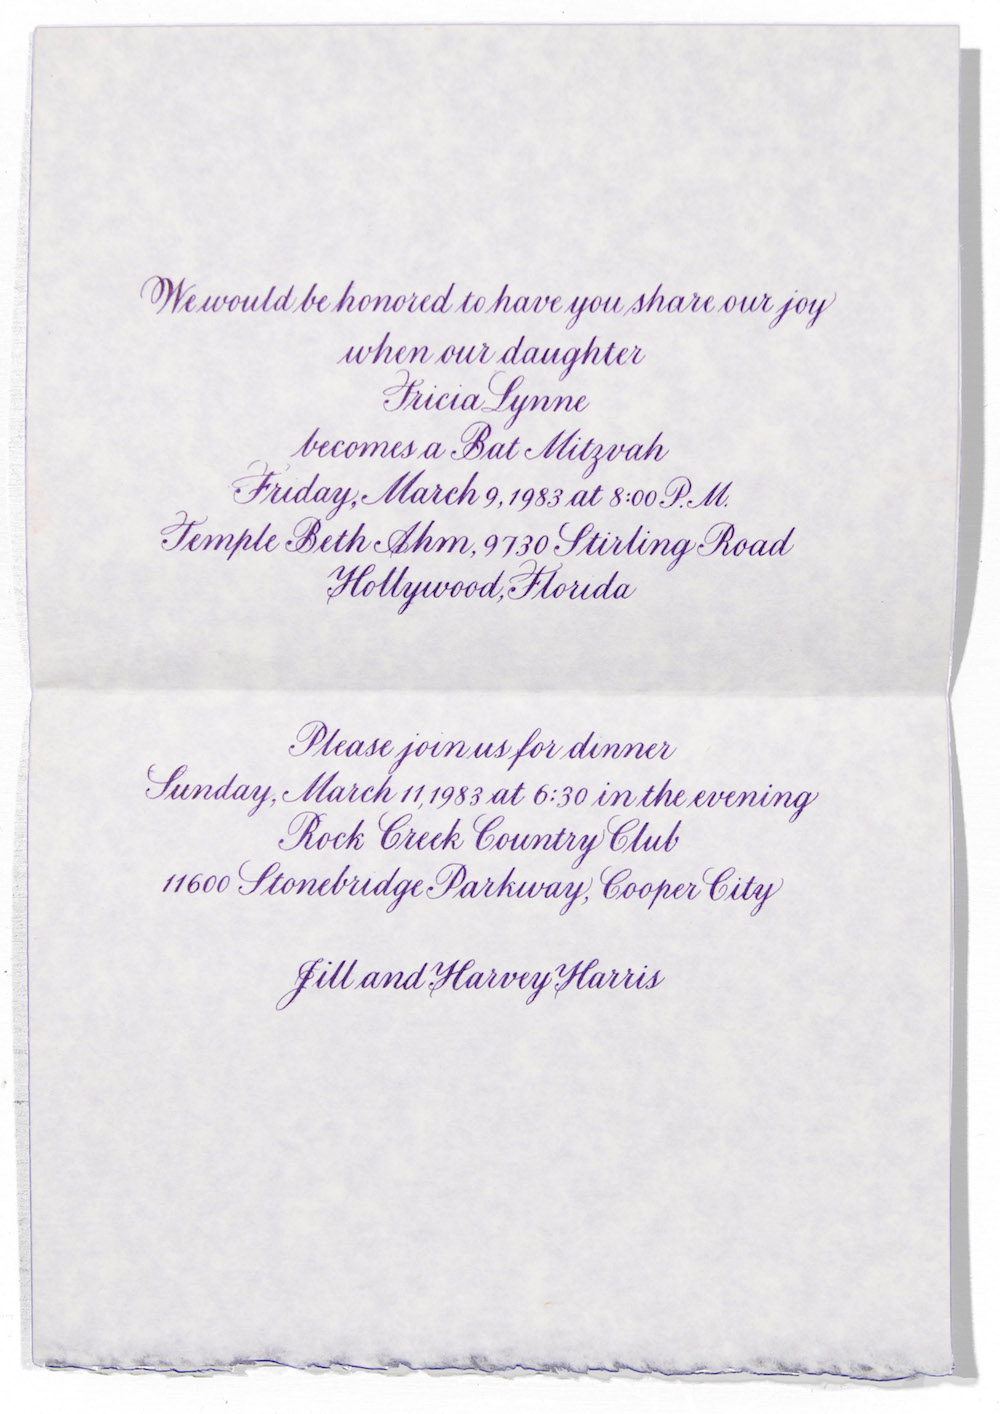 We would be honored to have you share our joy
when our daughter
Tricia Lynne
becomes a Bat Mitzvah
Friday, March 9, 1983 at 8:00 P.M.
Temple Beth Ahm, 9730 Stirling Road
Hollywood, Florida
Please join us for dinner
Sunday, March 11, 1983 at 6:30 in the evening
Rock Creek Country Club
11600 Stonebridge Parkway, Cooper City
Jill and Harvey Harris